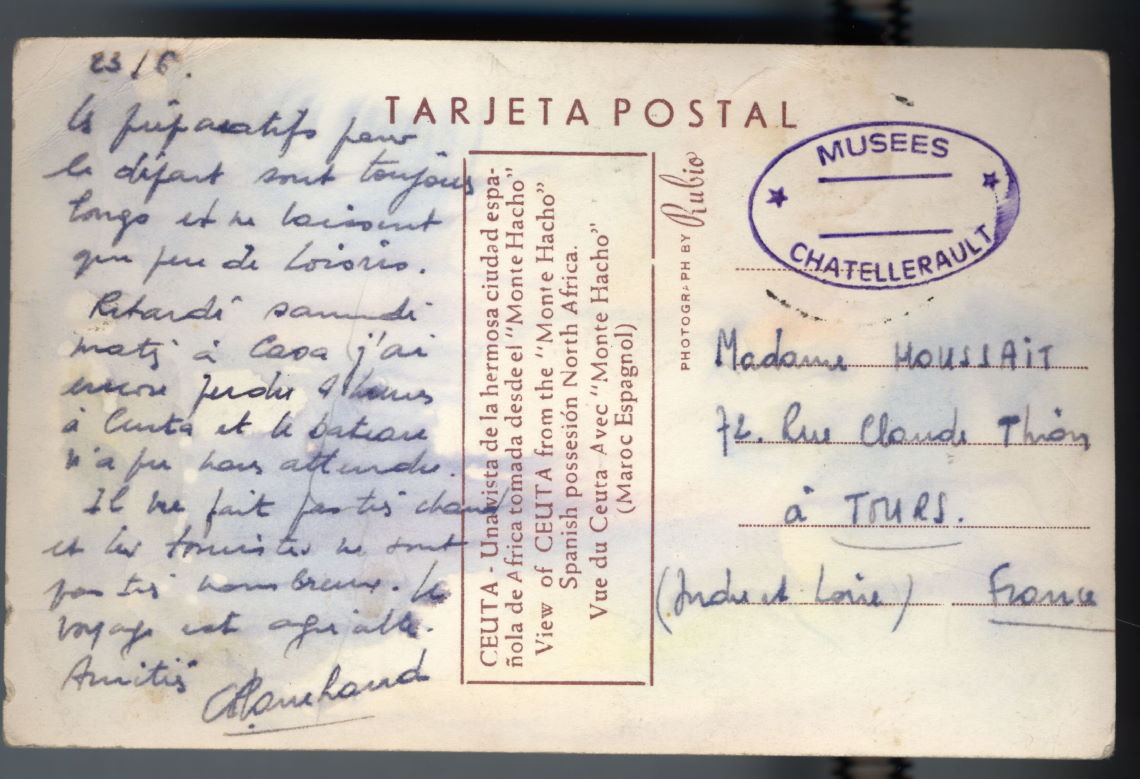 23/6.
Les préparatifs pour
le départ sont toujours
longs et ne laissent
que peu de loisirs.
Retardé samedi
matin à Casa j'ai
encore perdu 4 heures
à Ceuta et le bateau
n'a pu nous attendre.
Il ne fait pas très chaud
et les touristes ne sont
pas très nombreux. Le
voyage est agréable.
Amitiés
TARJETA POSTAL
CEUTA - Una vista de la hermosa ciudad espa-
ñola de Africa tomada desde el "Monte Hacho"
View of CEUTA from the "Monte Hacho"
Spanish possesión North Africa.
Vue du Ceuta Avec "Monte Hacho"
(Maroc Espagnol)
PHOTOGRAPH BY Rubio
MUSEES
CHATELLERAULT
Madame HOUSSAIT
72. Rue Claude Thion
à TOURS.
(Indre et Loire) France